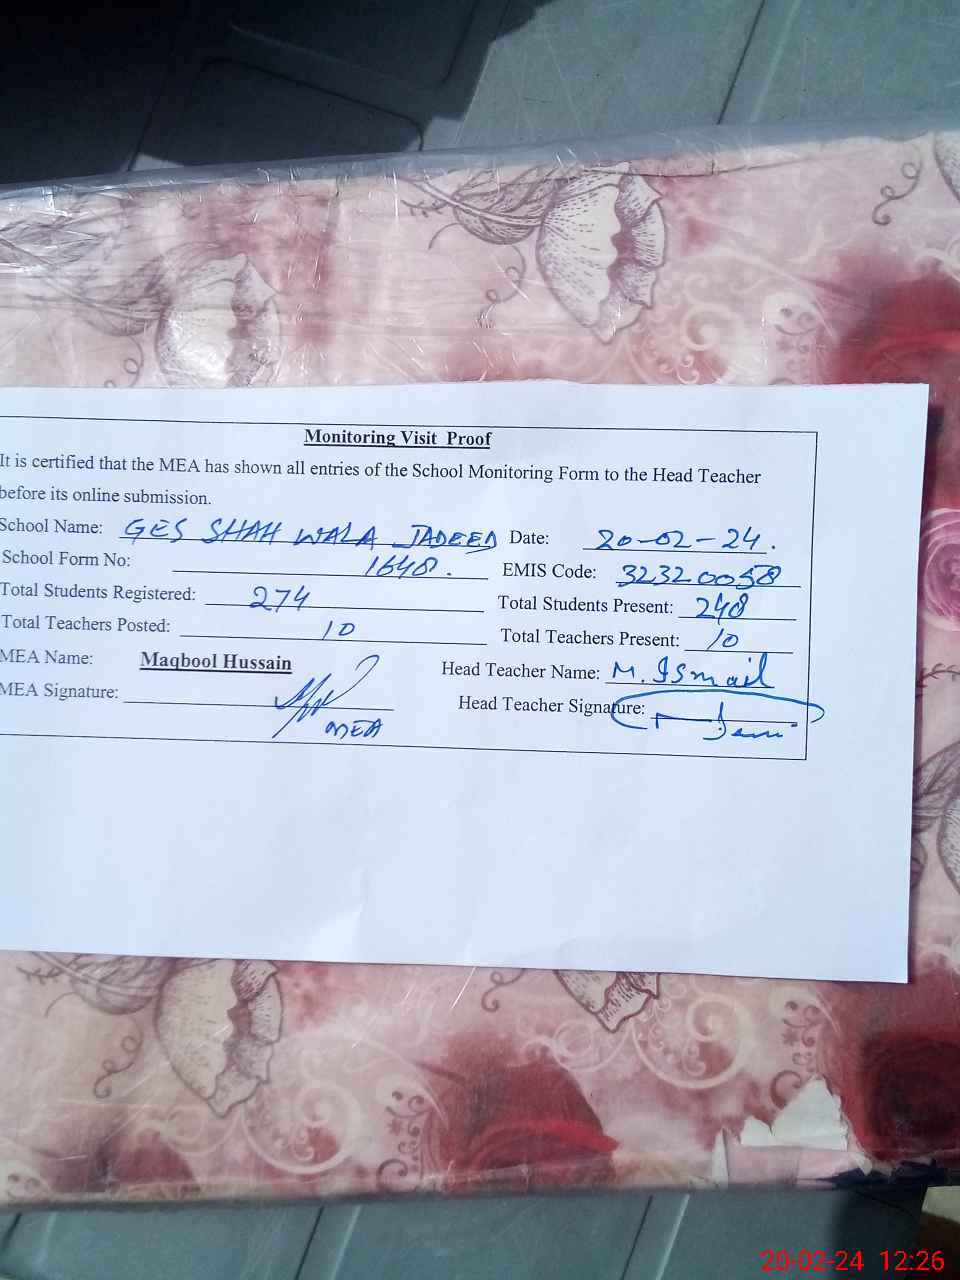 Monitoring Visit Proof
It is certified that the MEA has shown all entries of the School Monitoring Form to the Head Teacher
before its online submission.
School Name: GES SHAH WALA JADEED Date: 20-02-24.
School Form No: 1648. EMIS Code: 32320058
Total Students Registered: 274 Total Students Present: 248
Total Teachers Posted: 10 Total Teachers Present: 10
MEA Name: Maqbool Hussain Head Teacher Name: M. Ismail
MEA Signature: Head Teacher Signature:
MEA
20-02-24 12:26